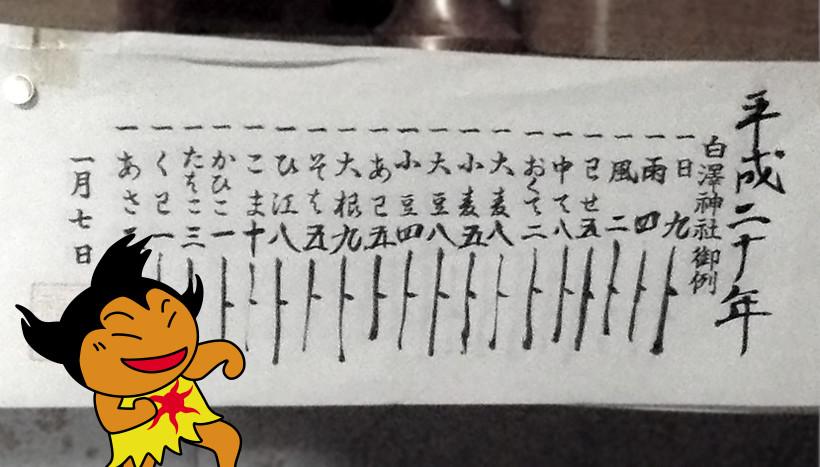 平成二十年
白澤神社御例
一日 九卜
一雨 四卜
一風 二卜
一己せ 五卜
一中て 八卜
一おくて 二卜
一大麦 八卜
一小麦 五卜
一大豆 八卜
一小豆 四卜
一あ己 五卜
一大根 九卜
一そは 五卜
一ひ江 八卜
一こま 十卜
一かひこ 一卜
一たはこ 三
一く己 一
一あさ
一月七日